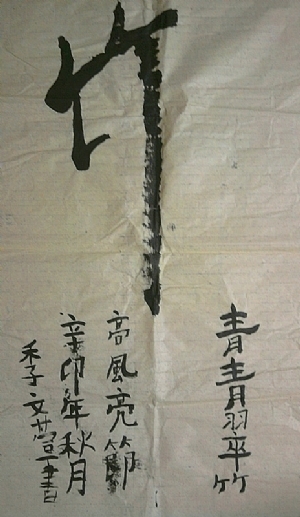 青青翠竹
竹
高風亮節
辛卯年秋月
季文書